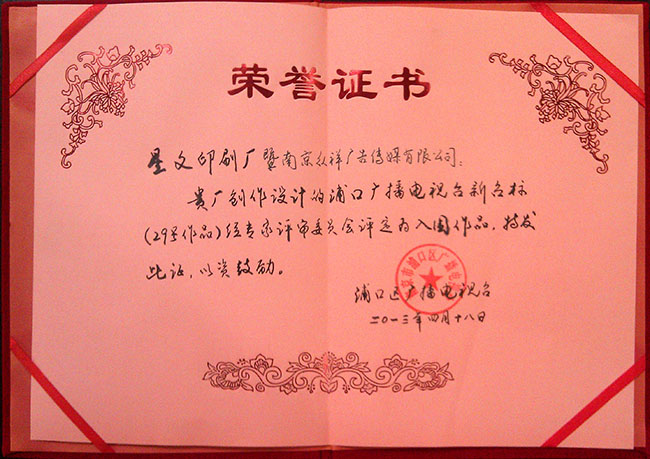 荣誉证书
星文印刷厂暨南京众祥广告传媒有限公司:
贵厂创作设计的浦口广播电视台新台标
(29号作品)经专家评审委员会评定为入围作品,特发
此证,以资鼓励。
南京市浦口区广播电视台
浦口区广播电视台
二〇一三年四月十八日